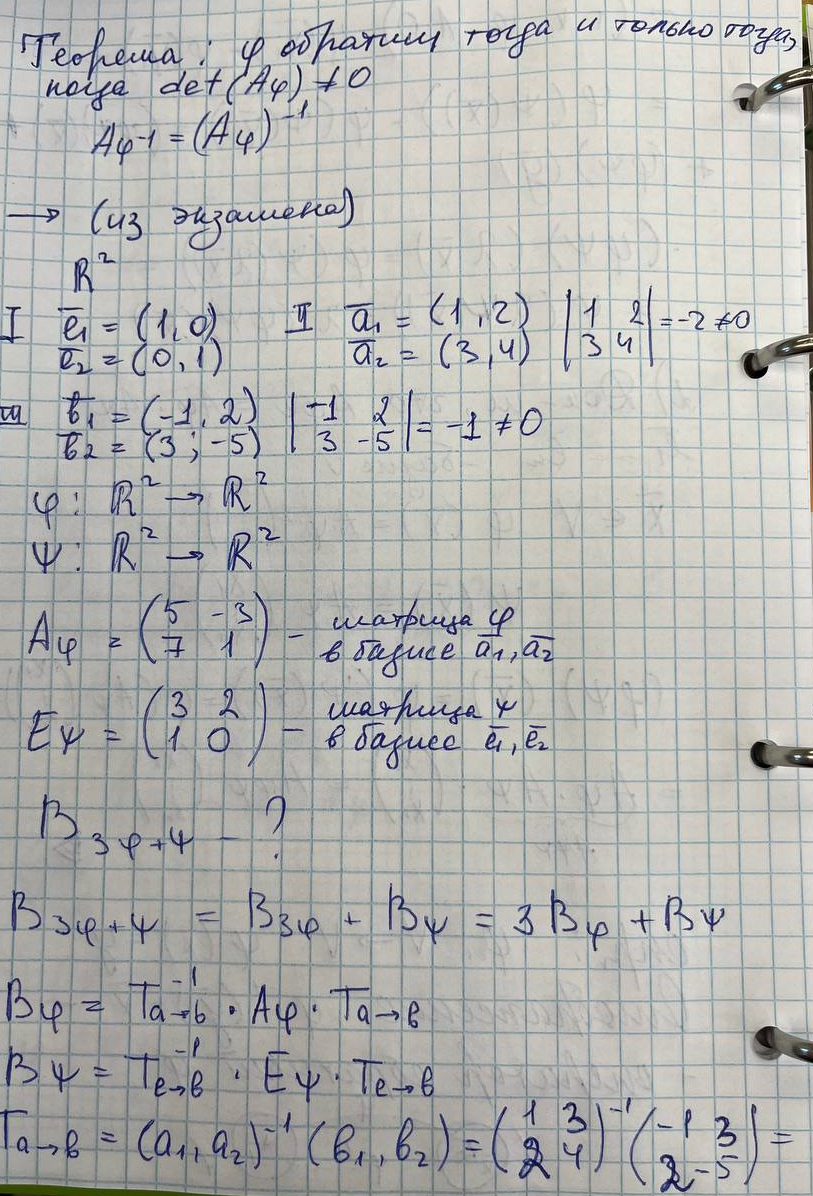 Теорема: φ обратим тогда и только тогда,
когда det(Aφ) ≠ 0
Aφ⁻¹ = (Aφ)⁻¹
→ (из экзамена)
ℝ²
I e̅₁ = (1, 0) II a̅₁ = (1, 2) |1 2| = -2 ≠ 0
e̅₂ = (0, 1) a̅₂ = (3, 4) |3 4|
III b̅₁ = (-1, 2) |-1 2| = -1 ≠ 0
b̅₂ = (3; -5) |3 -5|
φ: ℝ² → ℝ²
ψ: ℝ² → ℝ²
Aφ = (5 -3) – матрица φ
(7 1) в базисе a̅₁, a̅₂
Eψ = (3 2) – матрица ψ
(1 0) в базисе e̅₁, e̅₂
B₃φ₊ψ – ?
B₃φ₊ψ = B₃φ + Bψ = 3Bφ + Bψ
Bφ = Ta→b⁻¹ · Aφ · Ta→b
Bψ = Te→b⁻¹ · Eψ · Te→b
Ta→b = (a₁, a₂)⁻¹ (b₁, b₂) = (1 3)⁻¹ (-1 3) =
(2 4) (2 -5)